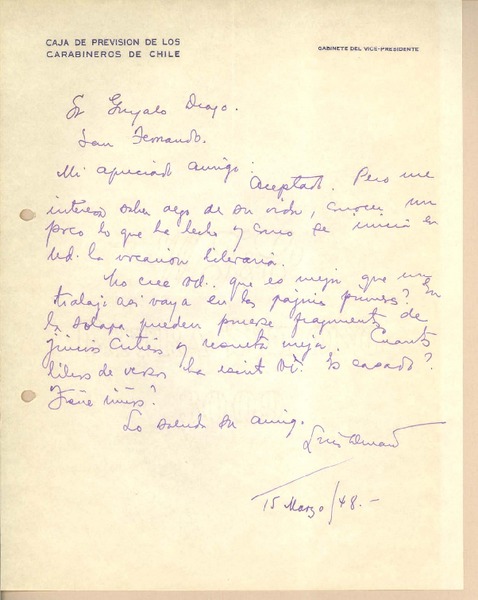 CAJA DE PREVISION DE LOS
CARABINEROS DE CHILE
GABINETE DEL VICE-PRESIDENTE
Sr Gonzalo Drago.
San Fernando.
Mi apreciado amigo:
Aceptado. Pero me
interesa saber algo de su vida, conocer un
poco lo que ha hecho y como se inició en
Ud. la vocación literaria.
No cree Ud. que es mejor que un
trabajo así vaya en las páginas primeras? En
la solapa pueden ponerse fragmentos de
juicios críticos y resulta mejor. Cuantos
libros de versos ha escrito Ud. Es casado?
Tiene niños?
Lo saluda su amigo.
Luis Durand
15 Marzo/48.-